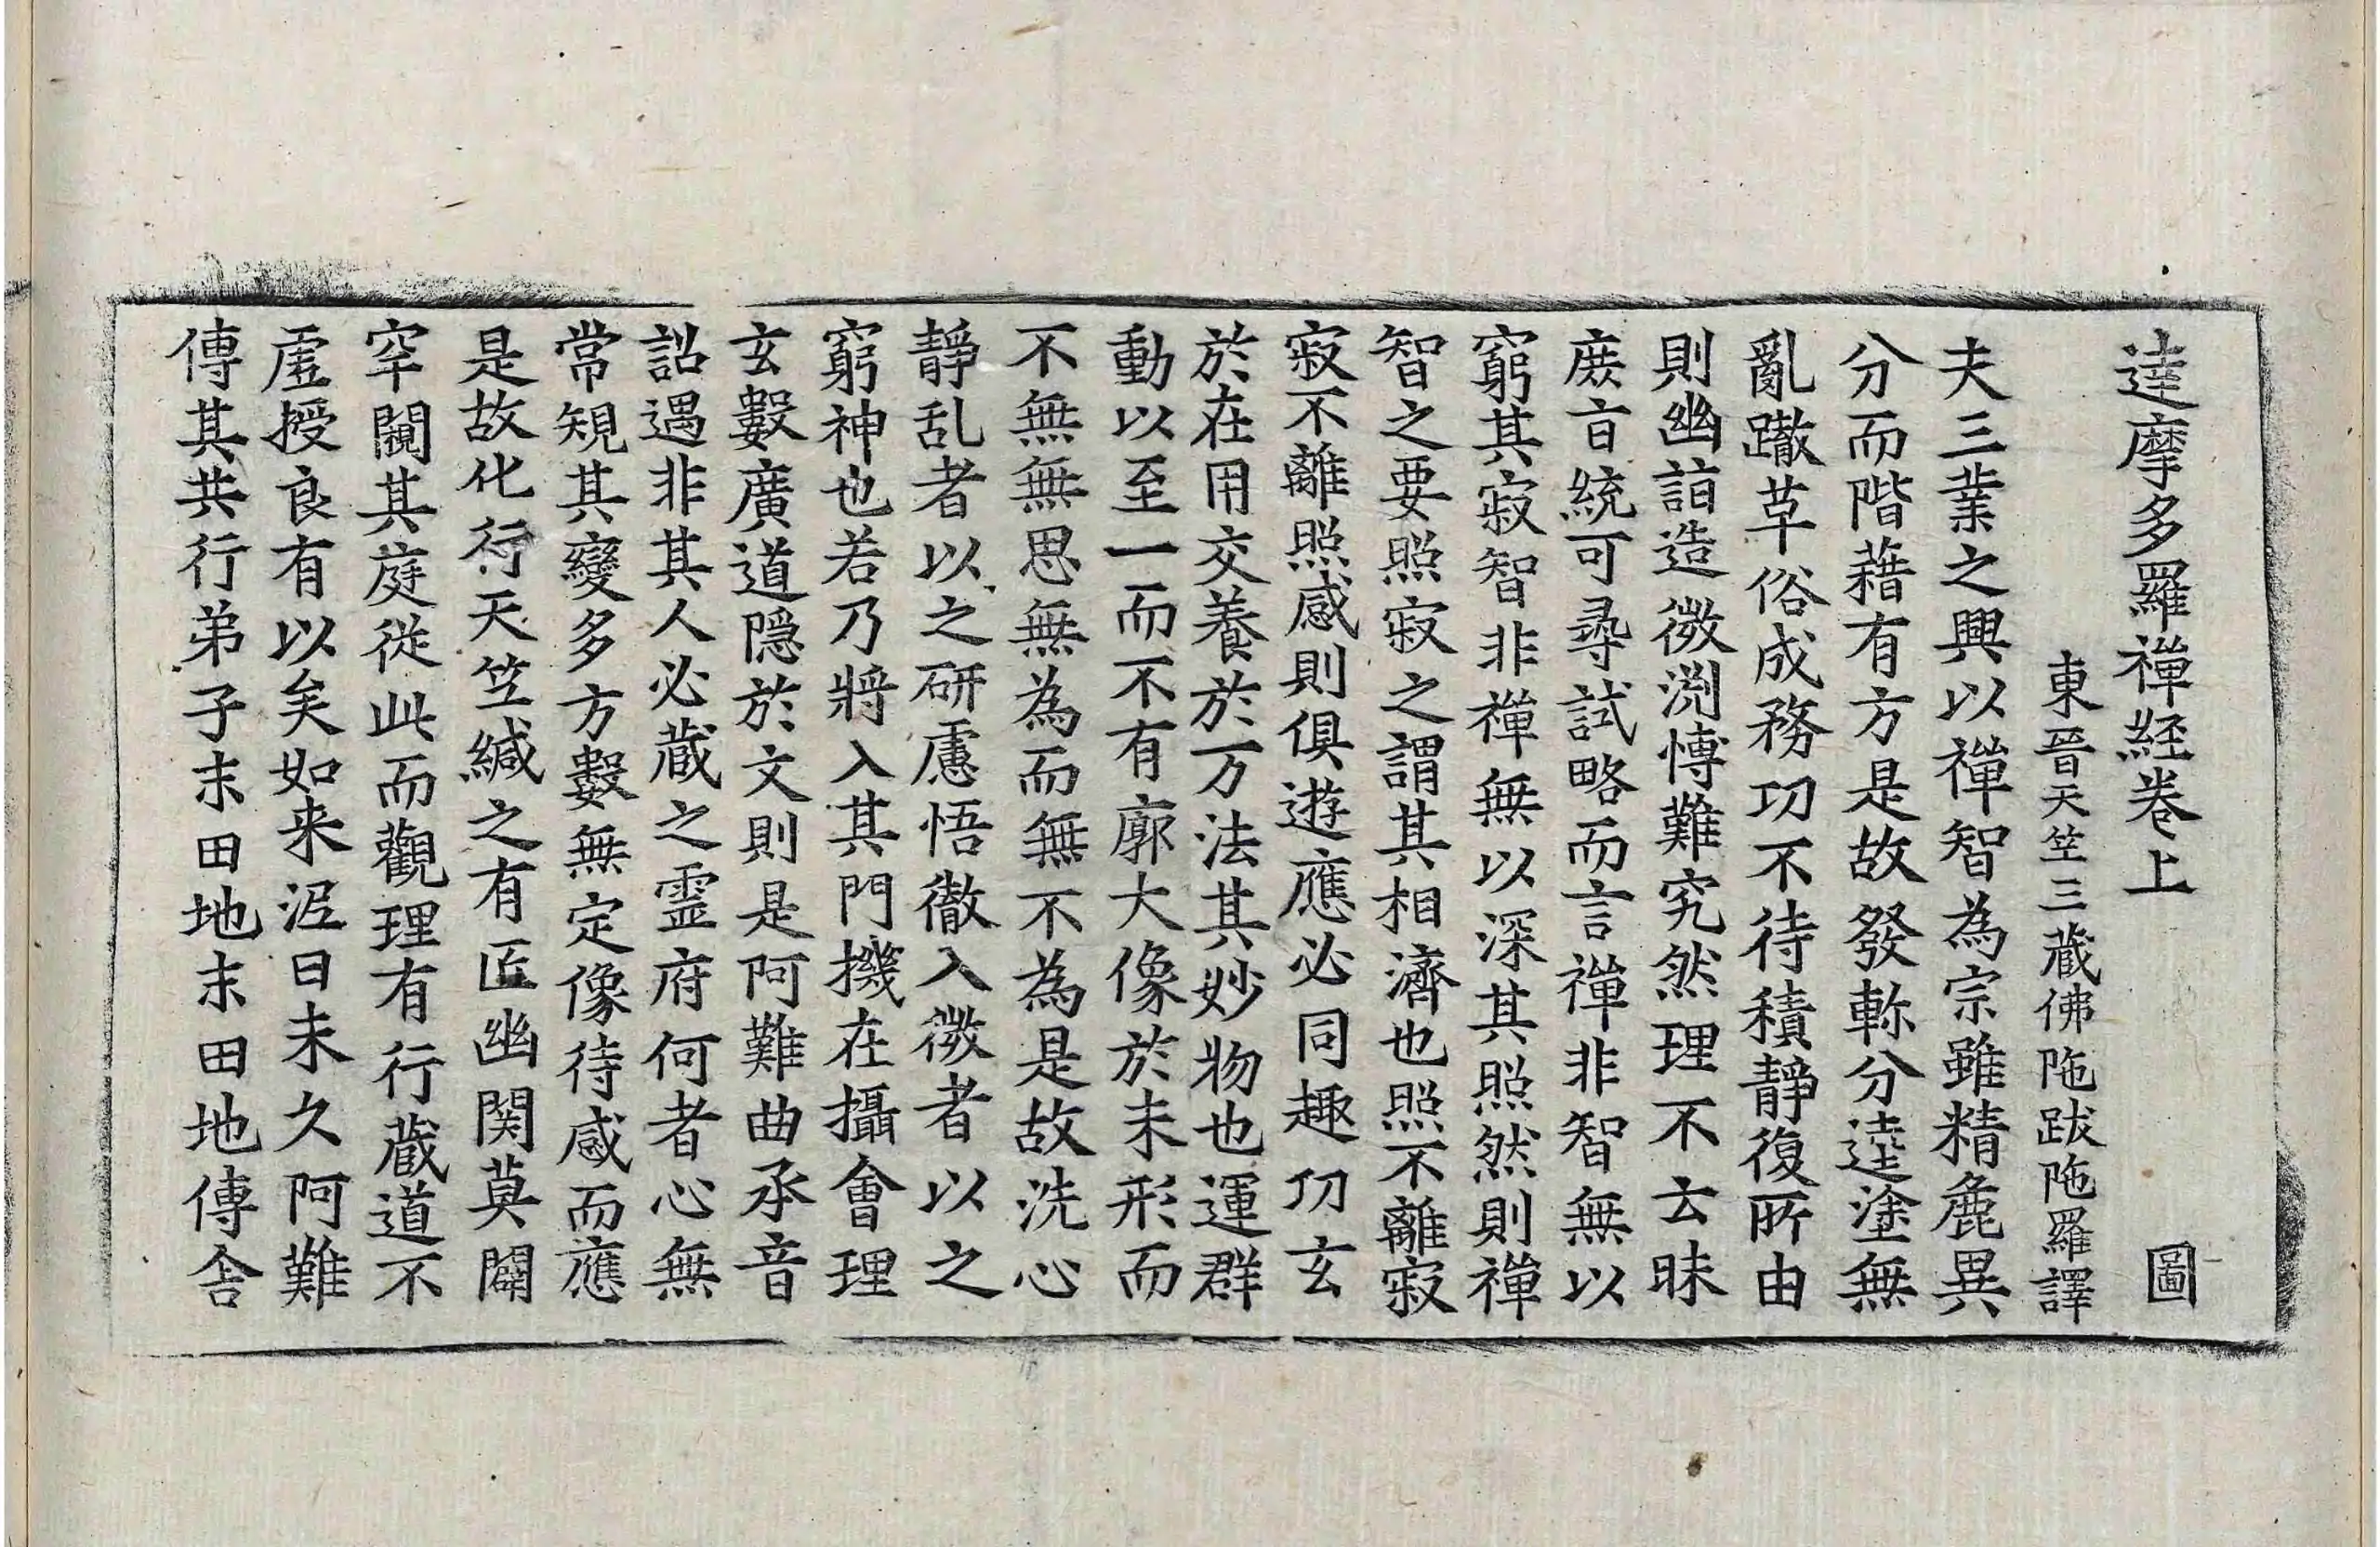 達摩多羅禪経卷上 圖
東晉天竺三藏佛陁跋陁羅譯
夫三業之興以禪智為宗雖精麁異
分而階藉有方是故發軫分逵塗無
亂轍草俗成務功不待積靜復所由
則幽詣造微淵博難究然理不云昧
庶旨統可尋試略而言禪非智無以
窮其寂智非禪無以深其照然則禪
智之要照寂之謂其相濟也照不離寂
寂不離照感則俱遊應必同趣功玄
於在用交養於万法其妙物也運群
動以至一而不有廓大像於未形而
不無無思無為而無不為是故洗心
靜乱者以之研慮悟徹入微者以之
窮神也若乃將入其門機在攝會理
玄數廣道隱於文則是阿難曲承音
詔遇非其人必藏之靈府何者心無
常規其變多方數無定像待感而應
是故化行天竺緘之有匠幽関莫闢
罕闚其庭從此而觀理有行藏道不
虛授良有以矣如来泥曰未久阿難
傳其共行弟子末田地末田地傳舍